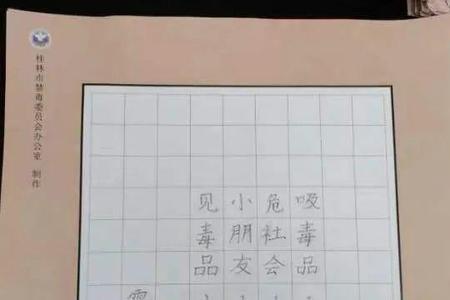 桂林市禁毒委员会办公室 制作
吸毒品
危社会
小朋友
见毒品